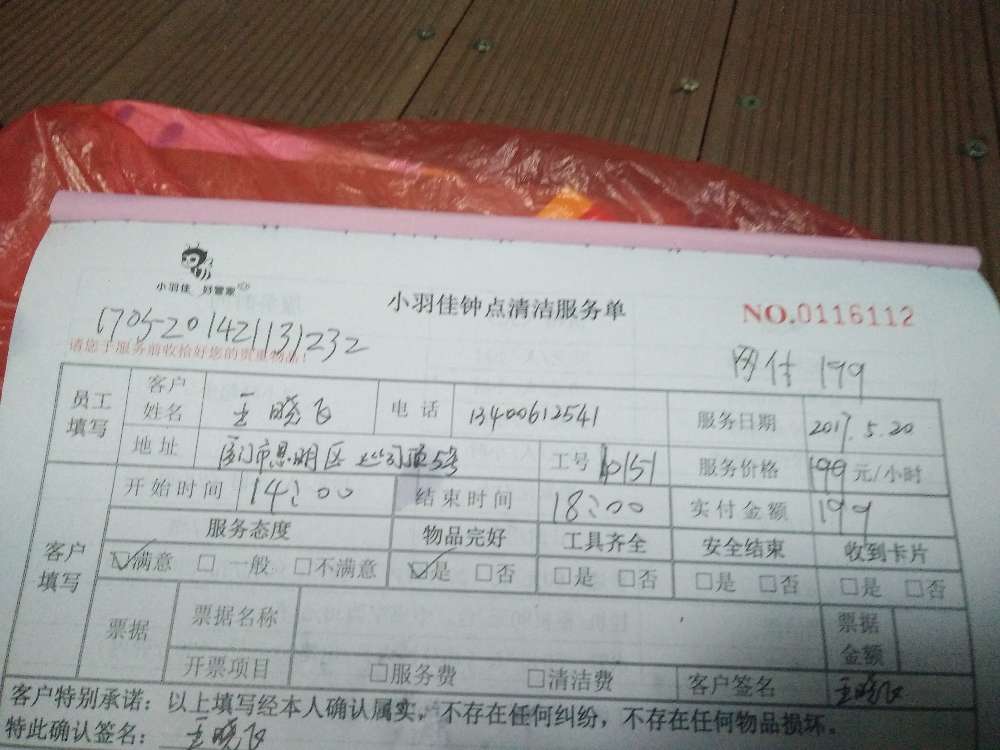 小羽佳 好管家
小羽佳钟点清洁服务单
NO.0116112
1705-201421131232
请您于服务前收拾好您的贵重物品!
网付 199
员工填写 客户姓名 王晓飞 电话 13400612541 服务日期 2017.5.20
地址 厦门市思明区 5号 工号 服务价格 199 元/小时
客户填写 开始时间 14:00 结束时间 18:00 实付金额 199
服务态度 物品完好 工具齐全 安全结束 收到卡片
☑满意 □一般 □不满意 ☑是 □否 □是 □否 □是 □否 □是 □否
票据 票据名称 票据金额
开票项目 □服务费 □清洁费 客户签名 王晓飞
客户特别承诺:以上填写经本人确认属实,不存在任何纠纷,不存在任何物品损坏。
特此确认签名: 王晓飞